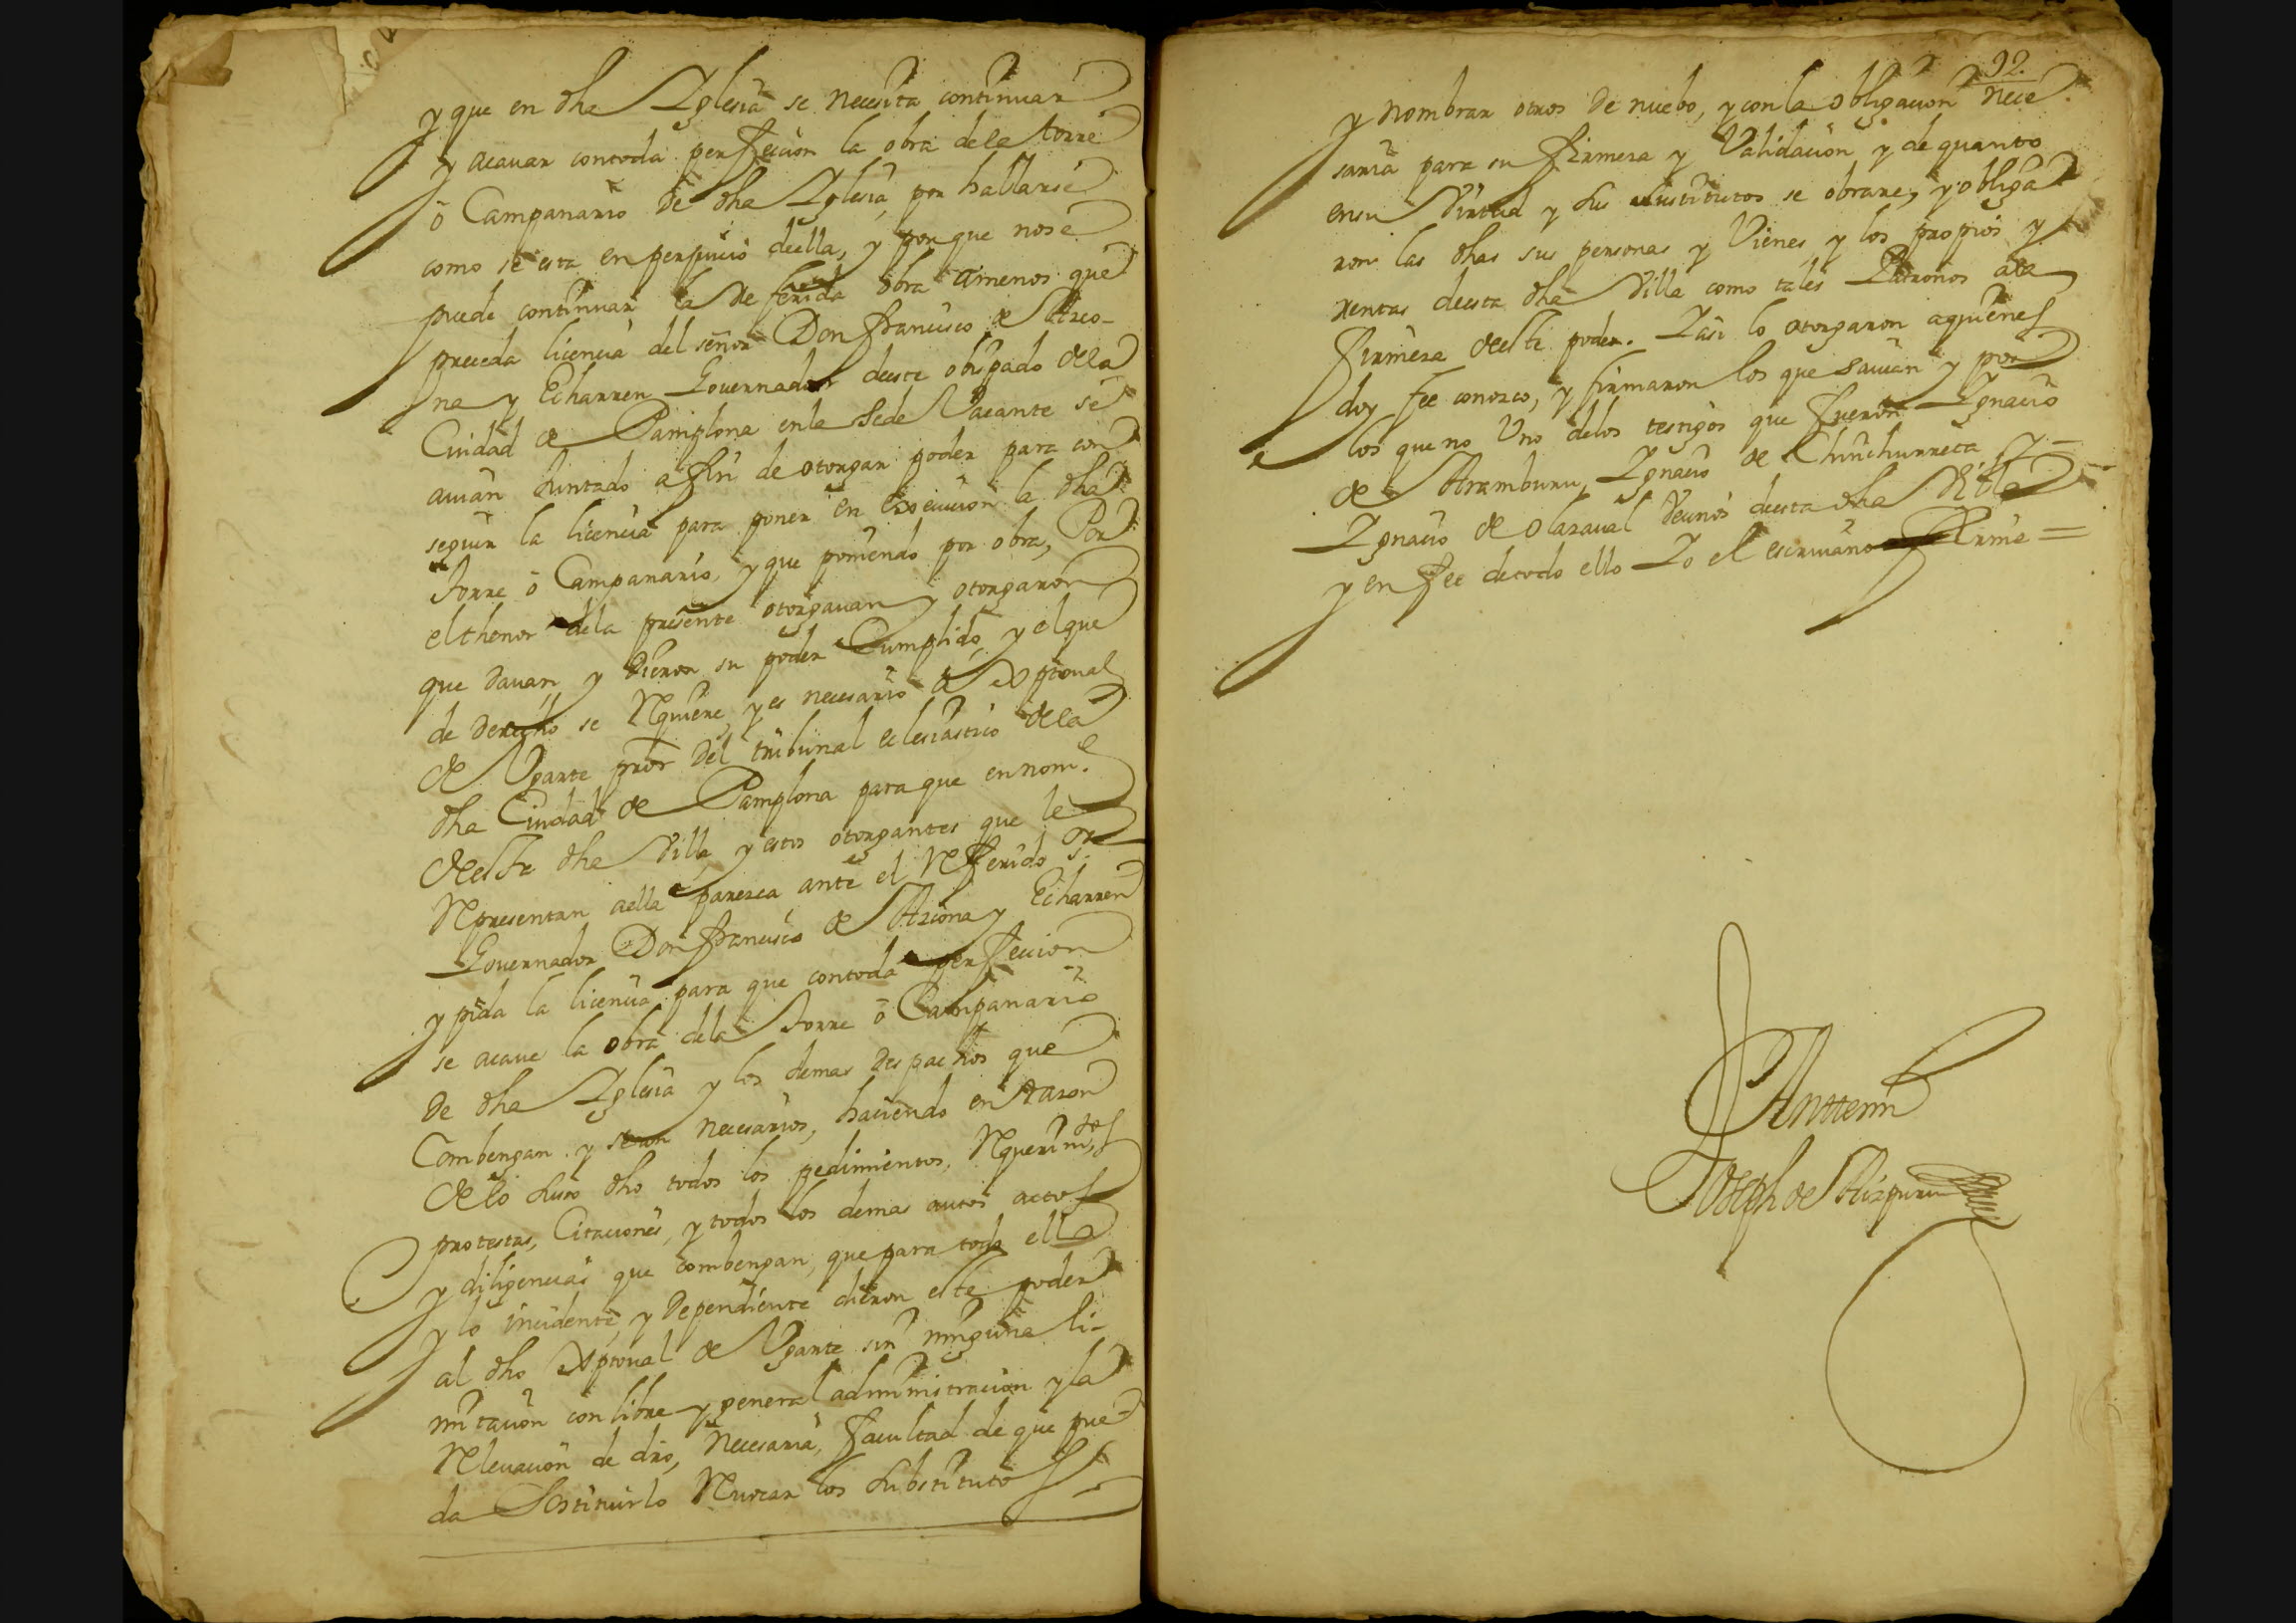 y que en dha Yglesia se necesita continuar
y acavar contoda perfeccion la obra dela torre
o Campanario de dha Yglesia, por hallarse
como se esta en perjuicio deella, y porque nose
puede continuar la Referida obra amenos que
preceda licencia del señor Don francisco de Arco-
na y Echarren Governador deeste obispado dela
Ciudad de Pamplona enla Sede Vacante se
avian Juntado a fin de otorgar poder para con
seguir la licencia para poner en execucion la dha
torre o Campanario, y que poniendo por obra, Por
elthenor dela presente otorgavan y otorgaron
que davan y dieron su poder Cumplido, y elque
de derecho se Requiere, y es necesario a Xptoval
de Ugarte procr del tribunal eclesiastico dela
dha Ciudad de Pamplona para que en nome
deesta dha Villa, y estos otorgantes que le
Representan aella paresca ante el Referido Sr
Governador Don francisco de Arcona y Echarren
y pida la licencia para que contoda perfeccion
se acave la obra dela torre o Campanario
de dha Yglesia y los demas despachos que
Combengan y sean necesarios, haciendo en razon
delo Suso dho todos los pedimientos, Requerimtos
protestas, Citaciones, y todos los demas autos actos
y diligencias que combengan, que para todo ello
y lo incidente, y dependiente dieron este poder
al dho Xptoval de Ugarte sin ninguna li-
mitacion con libre y general administracion y la
Relevacion de dro, necesaria, facultad de que pue-
da Sostituirlo Revocar los Substitutos
92.
y nombrar otros de nuebo, y con la obligacion nece
saria para su firmesa y Validacion y de quanto
ensu Virtud y sus sustitutos se obrare, y obliga
ron las dhas sus personas y Vienes, y los propios y
rentas deesta dha Villa como tales Patronos ala
firmesa deeste poder. Yasi lo otorgaron aquienes
doy fee conosco, y firmaron los que savian y por
los que no Uno delos testigos que fueron Ygnacio
de Aramburu, Ygnacio de Chinchurreta, y
Ygnacio de Olasaval Vecinos deesta dha Villa
y en fee detodo ello Yo el escrivano firme =
Antemi
Joseph de Aizpuru